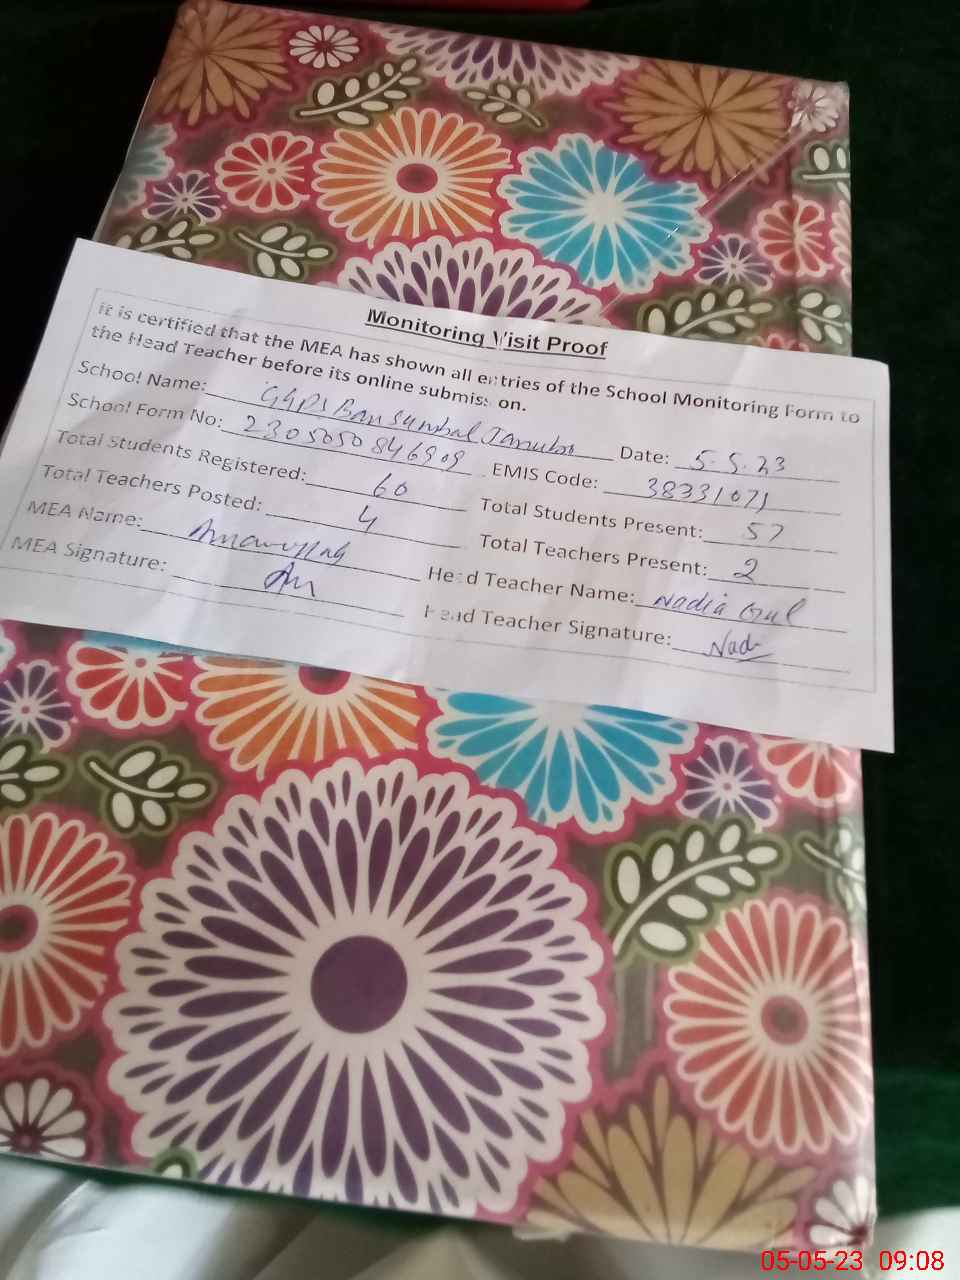 Monitoring Visit Proof
It is certified that the MEA has shown all entries of the School Monitoring Form to
the Head Teacher before its online submission.
School Name: GGPS Ban Sumbal Date: 5-5-23
School Form No: 2305050846909 EMIS Code: 38331071
Total Students Registered: 60 Total Students Present: 57
Total Teachers Posted: 4 Total Teachers Present: 2
MEA Name: Head Teacher Name: Nadia Gul
MEA Signature: Head Teacher Signature: Nadi
05-05-23 09:08